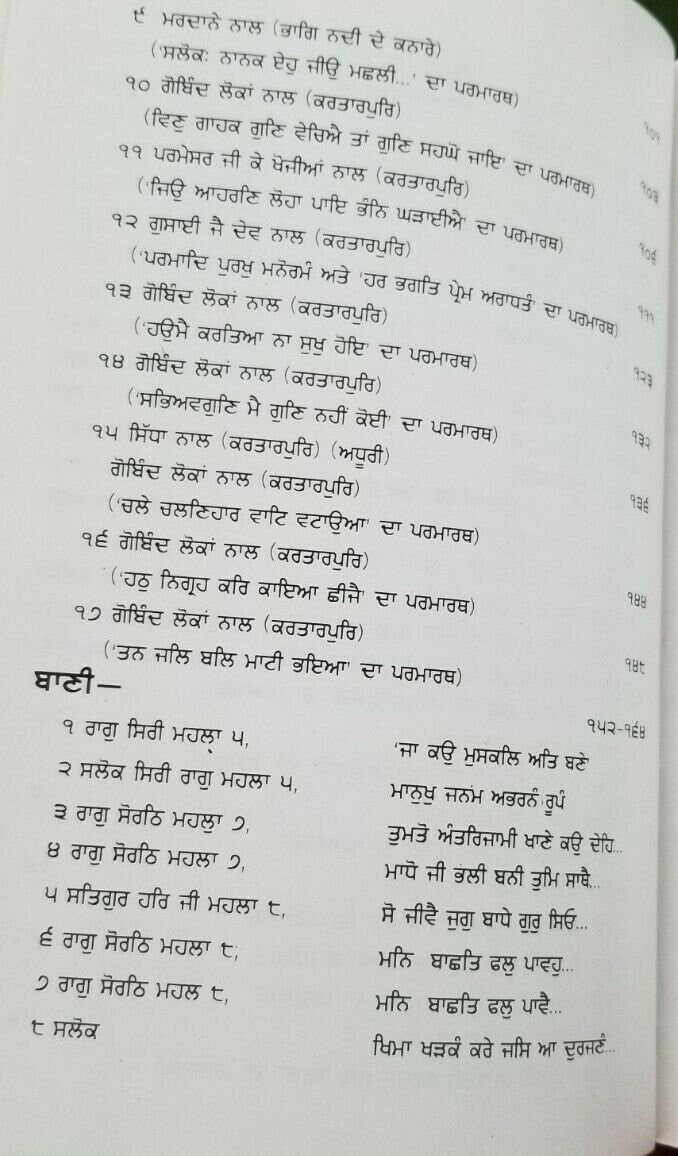 ੯ ਮਰਦਾਨੇ ਨਾਲ (ਭਾਗਿ ਨਦੀ ਦੇ ਕਨਾਰੇ)
('ਸਲੋਕਃ ਨਾਨਕ ਏਹੁ ਜੀਉ ਮਛਲੀ...' ਦਾ ਪਰਮਾਰਥ) ੧੦੧
੧੦ ਗੋਬਿੰਦ ਲੋਕਾਂ ਨਾਲ (ਕਰਤਾਰਪੁਰਿ)
(ਵਿਣੁ ਗਾਹਕ ਗੁਣਿ ਵੇਚਿਐ ਤਾਂ ਗੁਣਿ ਸਹਘੋ ਜਾਇ' ਦਾ ਪਰਮਾਰਥ) ੧੦੩
੧੧ ਪਰਮੇਸਰ ਜੀ ਕੇ ਖੋਜੀਆਂ ਨਾਲ (ਕਰਤਾਰਪੁਰਿ)
('ਜਿਉ ਆਹਰਣਿ ਲੋਹਾ ਪਾਇ ਭੰਨਿ ਘੜਾਈਐ' ਦਾ ਪਰਮਾਰਥ) ੧੦੬
੧੨ ਗੁਸਾਈ ਜੈ ਦੇਵ ਨਾਲ (ਕਰਤਾਰਪੁਰਿ)
('ਪਰਮਾਦਿ ਪੁਰਖੁ ਮਨੋਰਮੰ ਅਤੇ 'ਹਰ ਭਗਤਿ ਪ੍ਰੇਮ ਅਰਾਧਤੰ' ਦਾ ਪਰਮਾਰਥ) ੧੧੧
੧੩ ਗੋਬਿੰਦ ਲੋਕਾਂ ਨਾਲ (ਕਰਤਾਰਪੁਰਿ)
('ਹਉਮੈ ਕਰਤਿਆ ਨਾ ਸੁਖੁ ਹੋਇ' ਦਾ ਪਰਮਾਰਥ) ੧੨੩
੧੪ ਗੋਬਿੰਦ ਲੋਕਾਂ ਨਾਲ (ਕਰਤਾਰਪੁਰਿ)
('ਸਭਿਅਵਗੁਣਿ ਮੈ ਗੁਣਿ ਨਹੀਂ ਕੋਈ' ਦਾ ਪਰਮਾਰਥ) ੧੩੨
੧੫ ਸਿੱਧਾ ਨਾਲ (ਕਰਤਾਰਪੁਰਿ) (ਅਧੂਰੀ)
ਗੋਬਿੰਦ ਲੋਕਾਂ ਨਾਲ (ਕਰਤਾਰਪੁਰਿ) ੧੩੬
('ਚਲੇ ਚਲਣਿਹਾਰ ਵਾਟਿ ਵਟਾਉਆ' ਦਾ ਪਰਮਾਰਥ)
੧੬ ਗੋਬਿੰਦ ਲੋਕਾਂ ਨਾਲ (ਕਰਤਾਰਪੁਰਿ)
('ਹਠੁ ਨਿਗ੍ਰਹ ਕਰਿ ਕਾਇਆ ਛੀਜੈ' ਦਾ ਪਰਮਾਰਥ) ੧੪੪
੧੭ ਗੋਬਿੰਦ ਲੋਕਾਂ ਨਾਲ (ਕਰਤਾਰਪੁਰਿ)
('ਤਨ ਜਲਿ ਬਲਿ ਮਾਟੀ ਭਇਆ' ਦਾ ਪਰਮਾਰਥ) ੧੪੮
ਬਾਣੀ— ੧੫੨-੧੬੪
੧ ਰਾਗੁ ਸਿਰੀ ਮਹਲਾ ੫, 'ਜਾ ਕਉ ਮੁਸਕਲਿ ਅਤਿ ਬਣੇ'
੨ ਸਲੋਕ ਸਿਰੀ ਰਾਗੁ ਮਹਲਾ ੫, ਮਾਨੁਖੁ ਜਨਮ ਅਭਰਨੰ ਰੂਪੰ
੩ ਰਾਗੁ ਸੋਰਠਿ ਮਹਲੁ ੭, ਤੁਮਤੋ ਅੰਤਰਿਜਾਮੀ ਖਾਣੇ ਕਉ ਦੇਹਿ...
੪ ਰਾਗੁ ਸੋਰਠਿ ਮਹਲਾ ੭, ਮਾਧੋ ਜੀ ਭਲੀ ਬਨੀ ਤੁਮਿ ਸਾਥੈ...
੫ ਸਤਿਗੁਰ ਹਰਿ ਜੀ ਮਹਲਾ ੮, ਸੋ ਜੀਵੈ ਜੁਗੁ ਬਾਧੇ ਗੁਰੁ ਸਿਓ...
੬ ਰਾਗੁ ਸੋਰਠਿ ਮਹਲਾ ੮, ਮਨਿ ਬਾਛਤਿ ਫਲੁ ਪਾਵਹੁ...
੭ ਰਾਗੁ ਸੋਰਠਿ ਮਹਲ ੮, ਮਨਿ ਬਾਛਤਿ ਫਲੁ ਪਾਵੈ...
੮ ਸਲੋਕ ਖਿਮਾ ਖੜਕੰ ਕਰੇ ਜਸਿ ਆ ਦੁਰਜਣੰ...